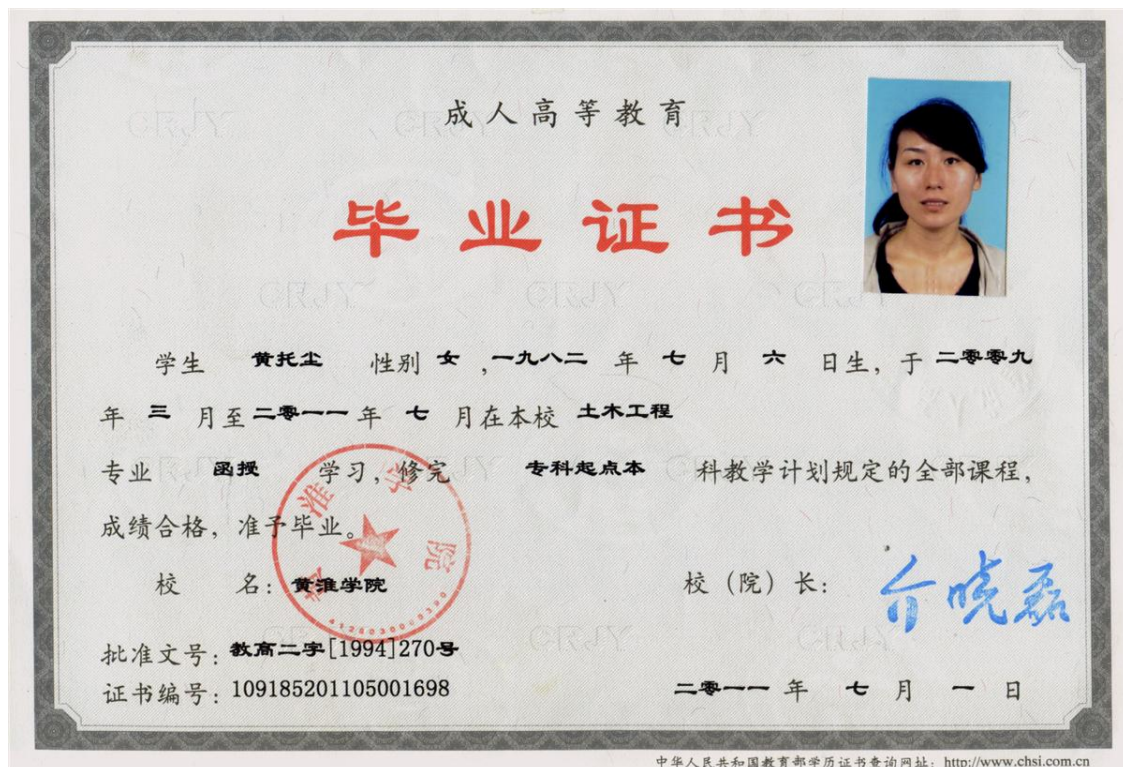 成人高等教育
毕业证书
学生 黄托尘 性别 女 ,一九八二 年 七 月 六 日生，于 二零零九
年 三 月至 二零一一 年 七 月在本校 土木工程
专业 函授 学习，修完 专科起点本 科教学计划规定的全部课程，
成绩合格，准予毕业。
黄淮学院
校 名：黄淮学院 校（院）长：介晓磊
批准文号：教高二字[1994]270号
证书编号：109185201105001698 二零一一 年 七 月 一 日
中华人民共和国教育部学历证书查询网址：http://www.chsi.com.cn